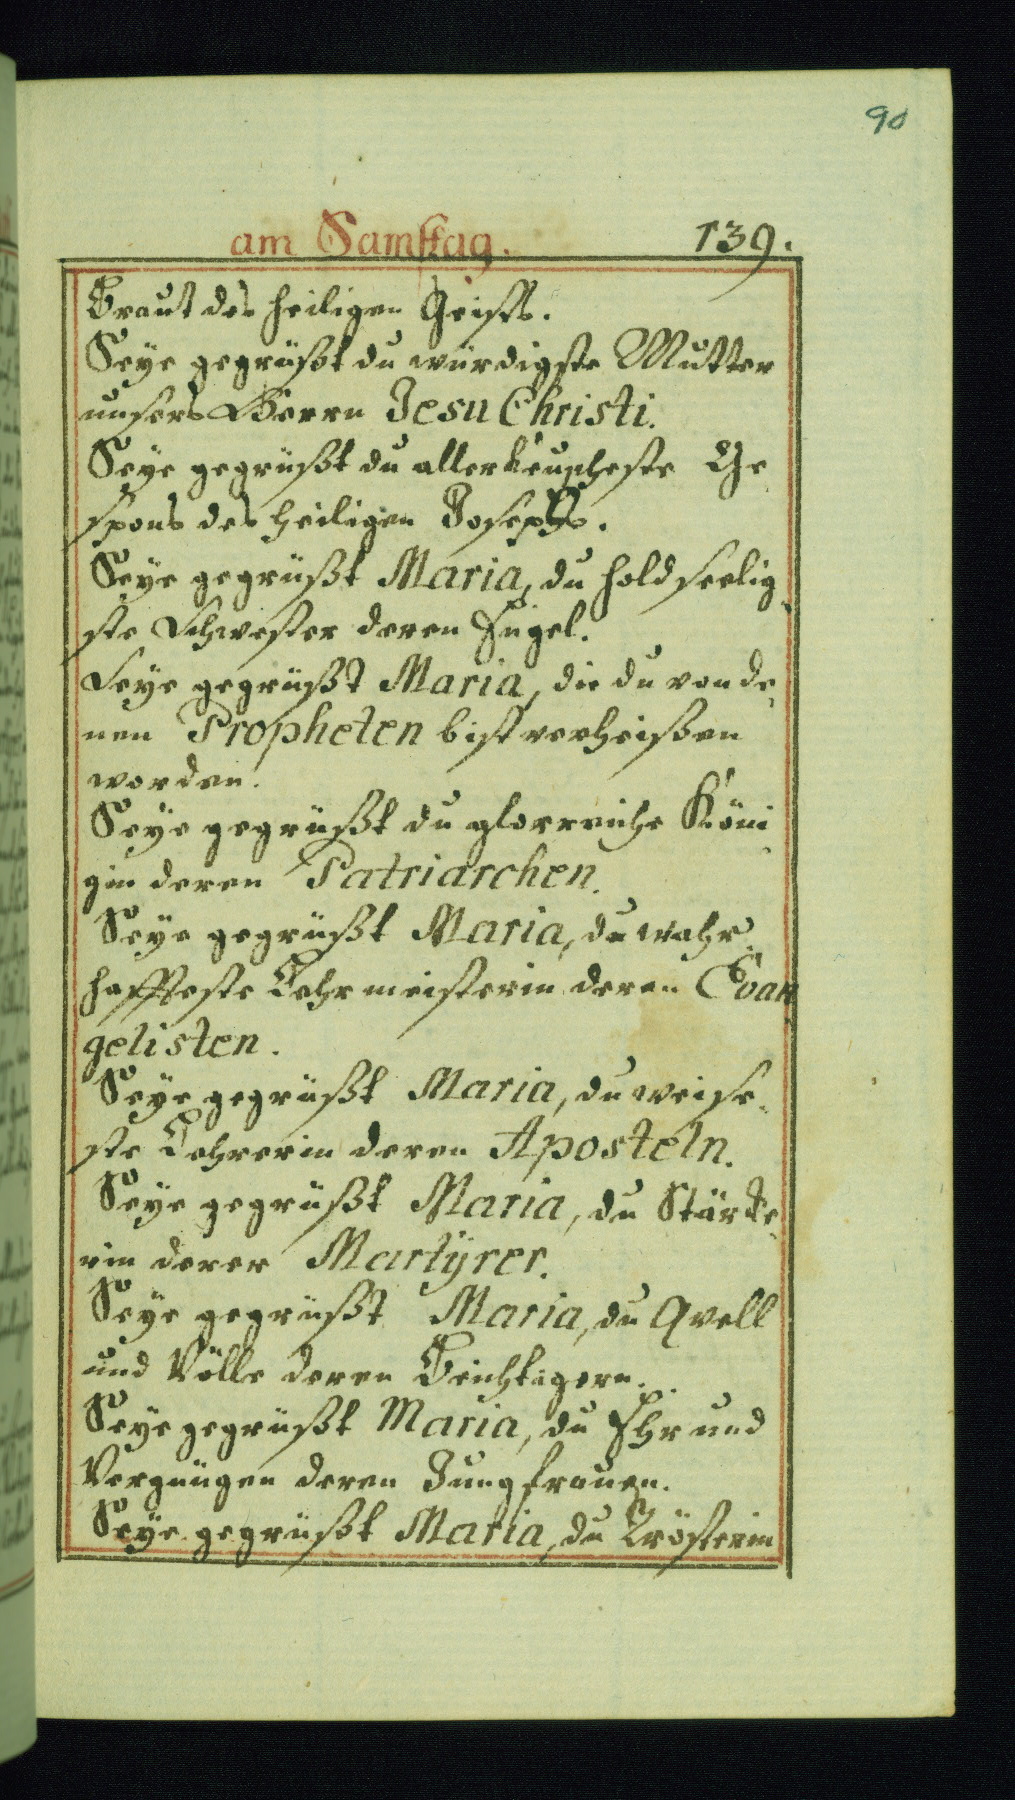 90
am Samstag. 139.
Braut des heiligen Geists.
Seye gegrüßt du würdigste Mutter
unsers Herrn Jesu Christi.
Seye gegrüßt du allerkeuscheste Ge
spons des heiligen Josephs.
Seye gegrüßt Maria, du holdseelig
ste Schwester deren Engel.
Seye gegrüßt Maria, die du von de
nen Propheten bist verheißen
worden.
Seye gegrüßt du glorreiche Köni
gin deren Patriarchen.
Seye gegrüßt Maria, du wahr
haffteste Lehrmeisterin deren Evan
gelisten.
Seye gegrüßt Maria, du weise
ste Lehrerin deren Aposteln.
Seye gegrüßt Maria, du Stärcke
rin derer Martÿrer.
Seye gegrüßt Maria, du Qvell
und Völle deren Beichtigern.
Seye gegrüßt Maria, du Ehr und
Vergnügen deren Jungfrauen.
Seye gegrüßt Maria, du Trösterin